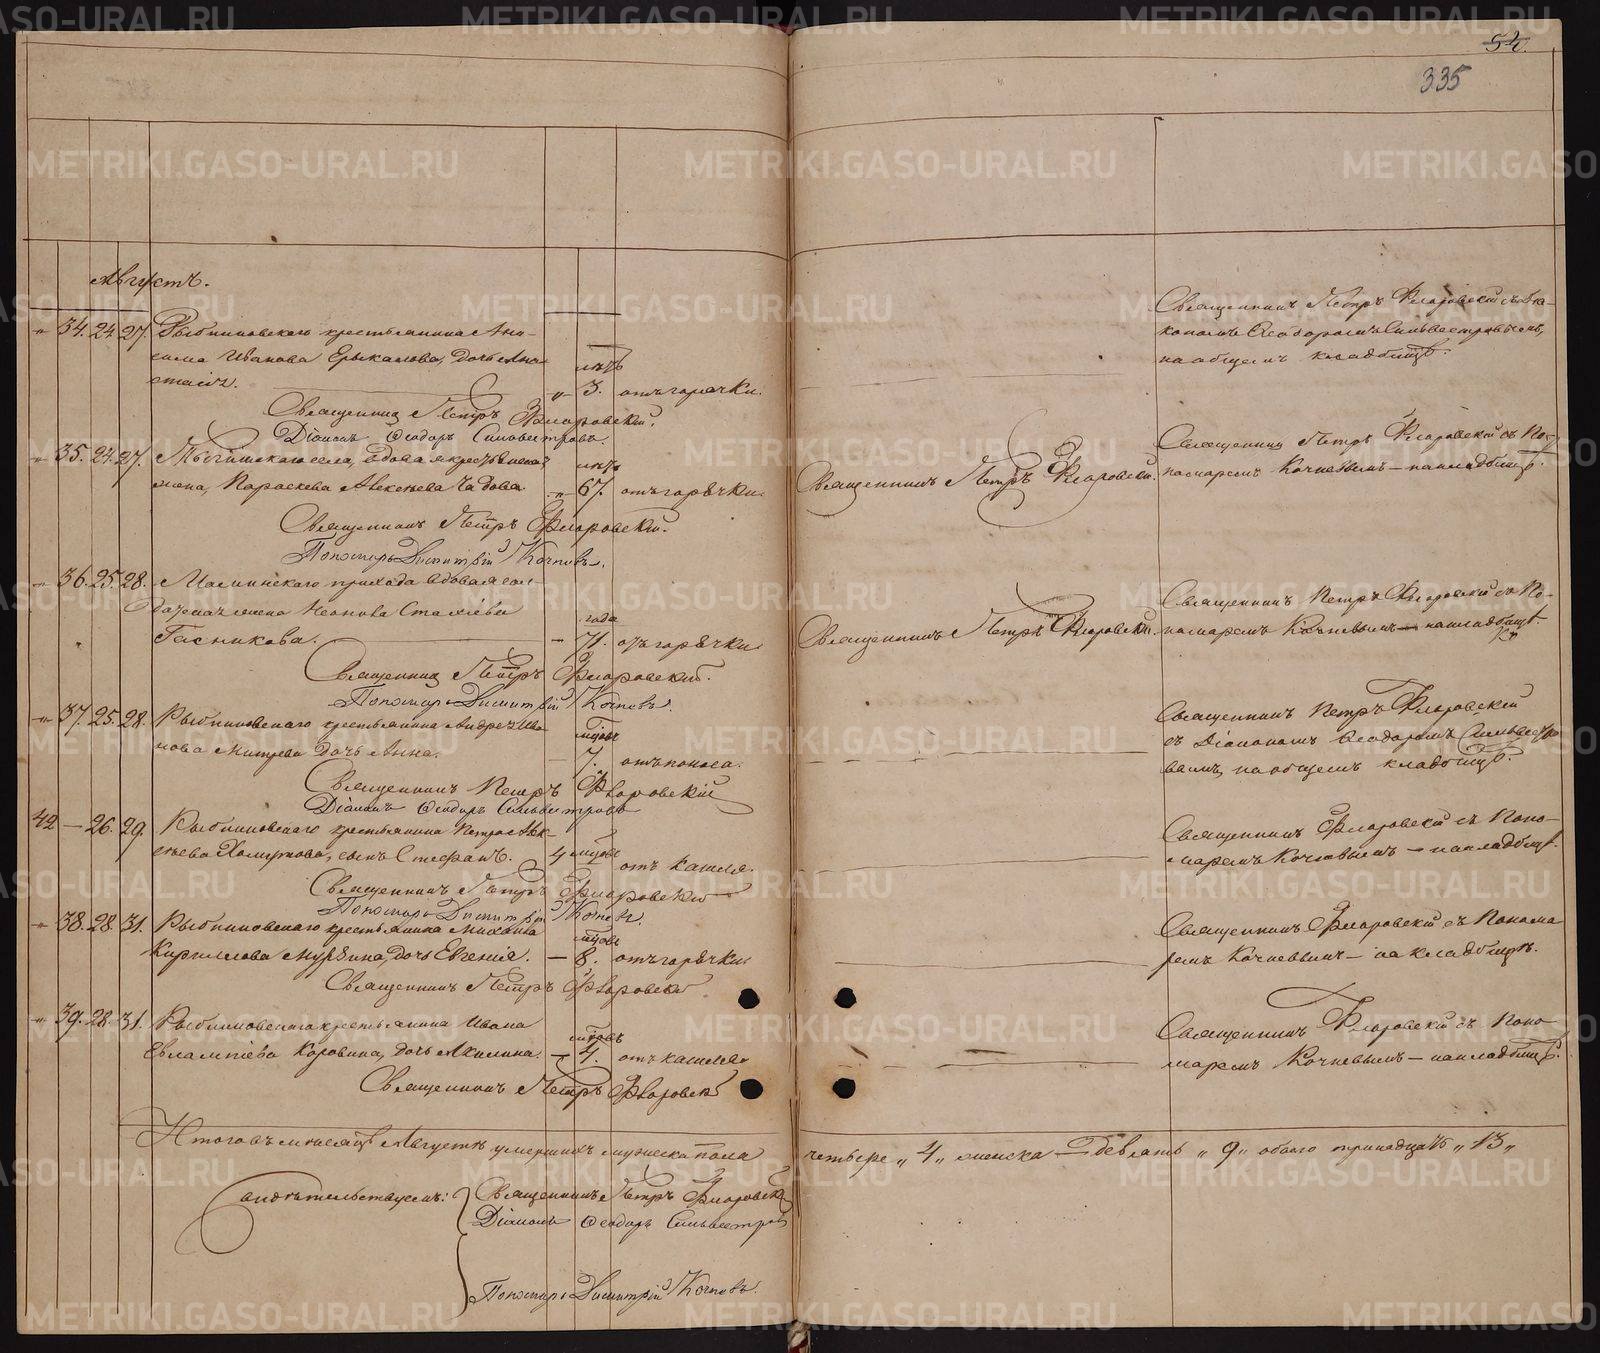 54.
335
Августъ.
" 34. 24. 27. Рыбниковскаго крестьянина Ани-
сима Иванова Ерыкалова, дочь Ана-
стасія. лѣтъ " 3. отъ горячки.
Священникъ Петръ Флоровскій съ діа-
кономъ Ѳеодоромъ Сильвестровымъ,
на общемъ кладбищѣ.
Священникъ Петръ Флоровскій.
Діаконъ Ѳеодоръ Сильвестровъ.
" 35. 24. 27. села, вдовая крестьянская
жена, Параскева Авксентьева лѣтъ " 67. отъ горячки.
Священникъ Петръ Флоровскій.
Священникъ Петръ Флоровскій съ По-
номаремъ Кочневымъ — на кладбищѣ.
Священникъ Петръ Флоровскій.
Пономарь Димитрій Кочневъ.
" 36. 25. 28. прихода вдовая сол-
датская жена
Гасникова. года — 71. отъ горячки
Священникъ Петръ Флоровскій.
Священникъ Петръ Флоровскій съ По-
номаремъ Кочневымъ — на кладбищѣ
Священникъ Петръ Флоровскій.
Пономарь Димитрій Кочневъ.
" 37. 25. 28. Рыбниковскаго крестьянина Андрея Ива-
нова Митрева дочь Анна. мѣсяц. — 7. отъ поноса.
Священникъ Петръ Флоровскій
съ Діакономъ Ѳеодоромъ Сильвестро-
вымъ, на общемъ кладбищѣ.
Священникъ Петръ Флоровскій
Діаконъ Ѳеодоръ Сильвестровъ
42 — 26. 29. Рыбниковскаго крестьянина Петра Авк-
сеньева сынъ Стефанъ. 4 мѣсяц. отъ кашля.
Священникъ Флоровскій съ Поно-
маремъ Кочневымъ — на кладбищѣ.
Священникъ Петръ Флоровскій
Пономарь Димитрій Кочневъ.
" 38. 28. 31. Рыбниковскаго крестьянина Михаила
Кириллова Мурзина, дочь Евгенія. — 8. отъ горячки
Священникъ Флоровскій съ Понома-
ремъ Кочневымъ — на кладбищѣ.
Священникъ Петръ Флоровскій
" 39. 28. 31. Рыбниковскаго крестьянина Ивана
Евлампіева Коровина, дочь Акилина. — 4. отъ кашля
Священникъ Флоровскій съ Поно-
маремъ Кочневымъ — на кладбищѣ.
Священникъ Петръ Флоровскій
Итого въ мѣсяцѣ Августѣ умершихъ мужеска пола
четыре „ 4 „ женска — девять „ 9 „ обоего тринадцать „ 13 „
Свидѣтельствуемъ: Священникъ Петръ Флоровскій
Діаконъ Ѳеодоръ Сильвестровъ
Пономарь Димитрій Кочневъ.
METRIKI.GASO-URAL.RU